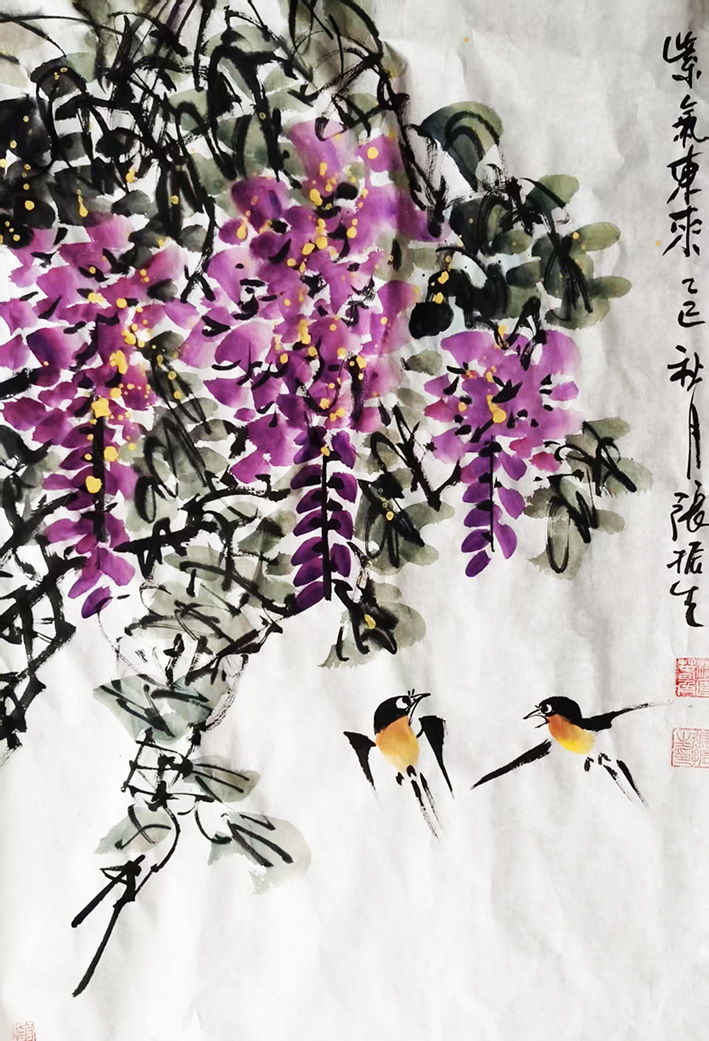 紫氣東來 乙巳 秋月 張振生